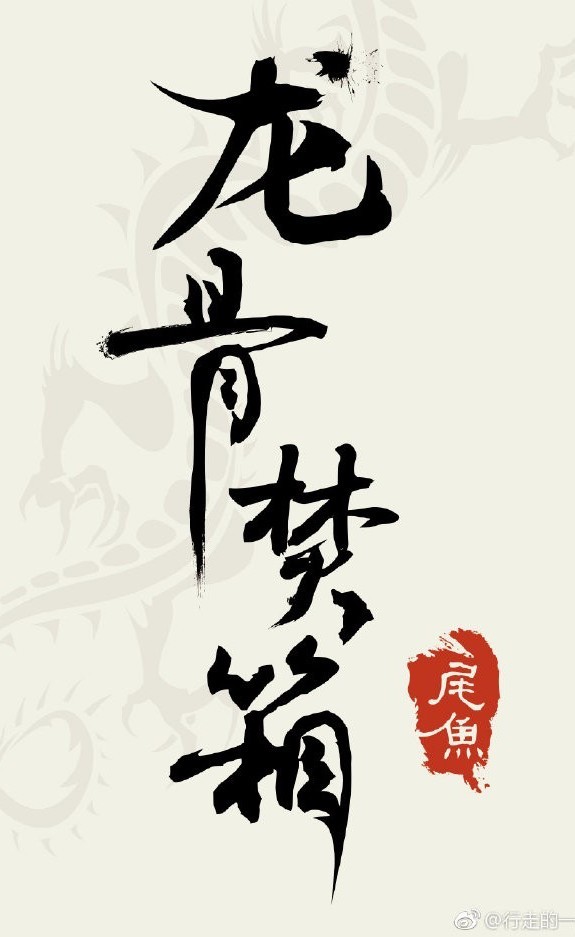 龙骨焚箱
尾鱼
@行走的一